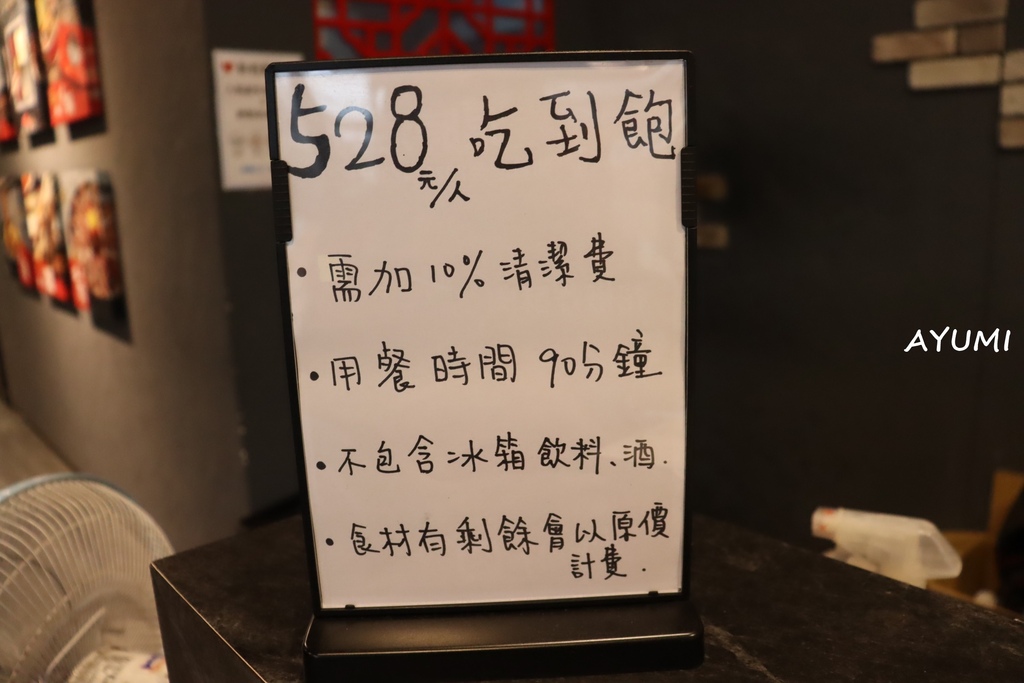 528元/人 吃到飽
• 需加10%清潔費
• 用餐時間 90分鐘
• 不包含冰箱飲料、酒.
• 食材有剩餘會以原價
計費.
AYUMI